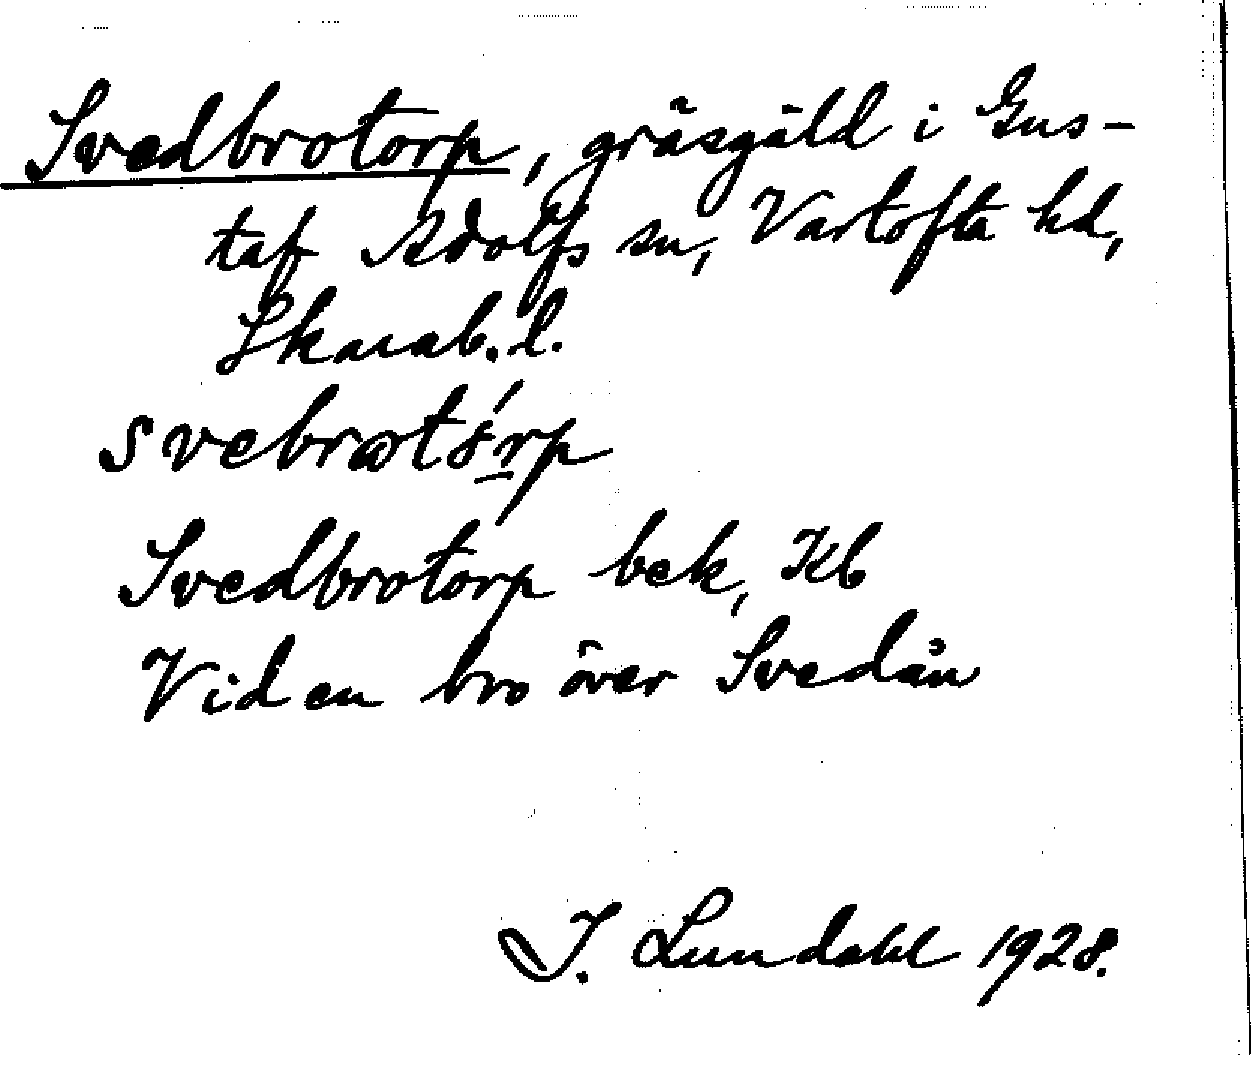 Svedbrotorp, gräsgäld i Gus-
taf Adolfs sn, Vartofta hd,
Skarab. l.
svebrωtórp
Svedbrotorp bek, Kb
Vid en bro över Svedån
I. Lundahl 1928.